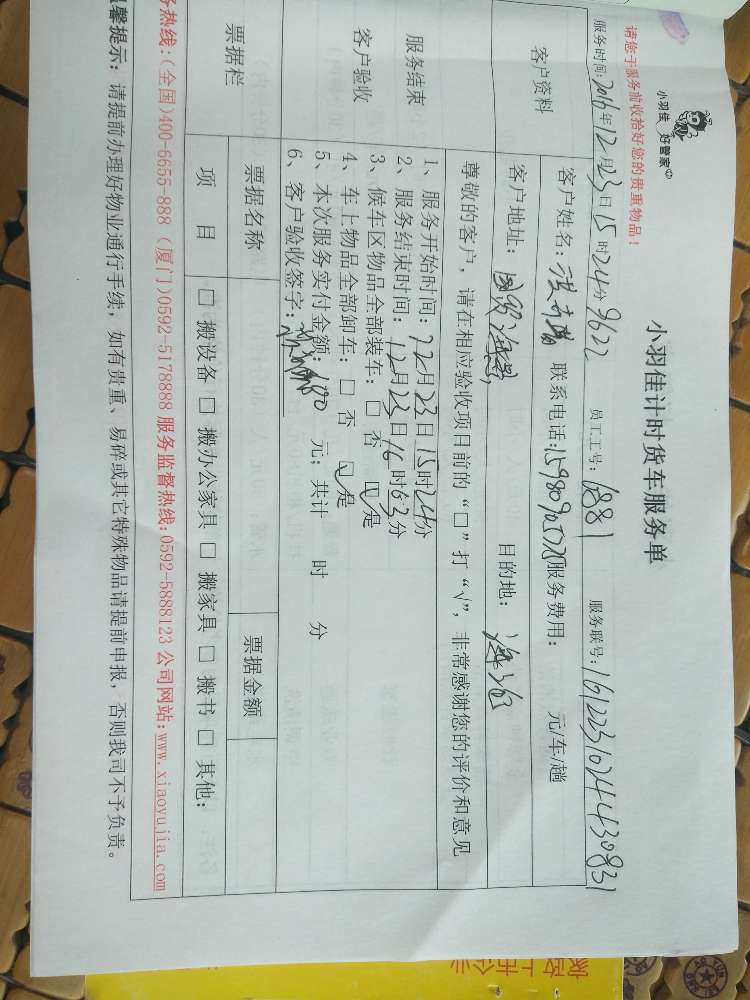 小羽佳 好管家
小羽佳计时货车服务单
请您于服务前收拾好您的贵重物品！
服务时间：2016年12月23日15时24分 9622 员工工号：6881 服务联号：16122310244430831
客户资料
客户姓名： 联系电话： 服务费用： 元/车/趟
客户地址： 目的地：
服务结束
客户验收
尊敬的客户，请在相应验收项目前的“□”打“√”，非常感谢您的评价和意见
1、服务开始时间：12月23日15时24分
2、服务结束时间：12月23日16时03分
3、候车区物品全部装车：□ 否 ☑是
4、车上物品全部卸车：□ 否 ☑是
5、本次服务实付金额：180 元；共计 时 分
6、客户验收签字：
票据栏
票据名称 票据金额
项 目 □ 搬设备 □ 搬办公家具 □ 搬家具 □ 搬书 □ 其他：
务热线：(全国)400-6655-888 (厦门)0592-5178888 服务监督热线：0592-5888123 公司网站：www.xiaoyujia.com
温馨提示：请提前办理好物业通行手续，如有贵重、易碎或其它特殊物品请提前申报，否则我司不予负责。
家政上市企业